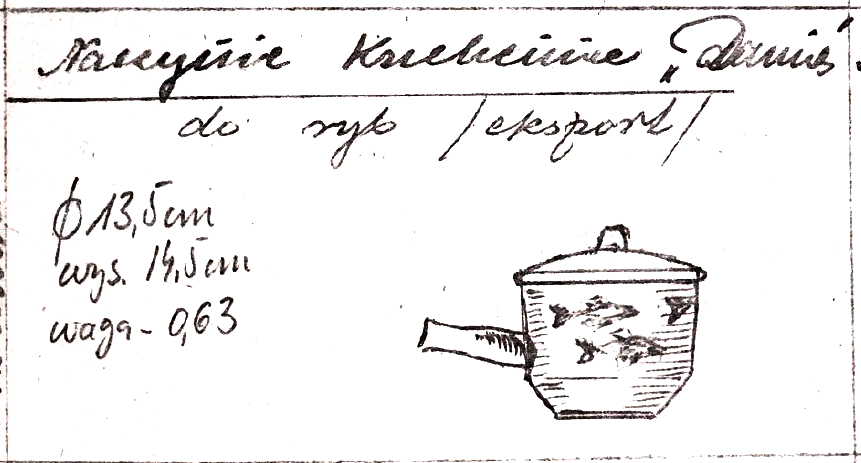 Naczynie Kuchenne „Danuś”
do ryb /eksport/
ϕ 13,5cm
wys. 14,5cm
waga - 0,63